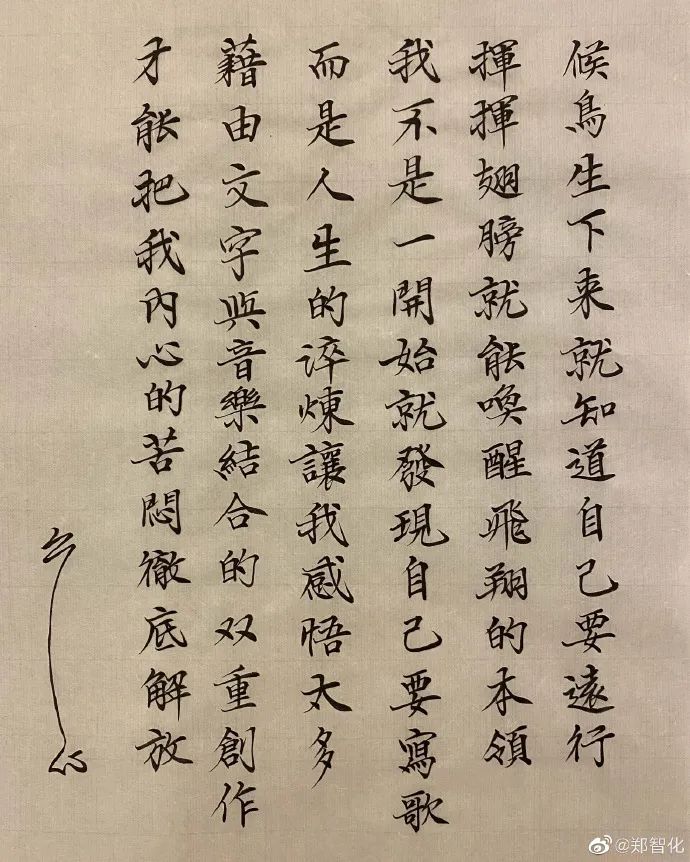 候鳥生下来就知道自己要遠行
揮揮翅膀就能喚醒飛翔的本領
我不是一開始就發現自己要寫歌
而是人生的淬煉讓我感悟太多
藉由文字與音樂結合的双重創作
才能把我內心的苦悶徹底解放
@郑智化